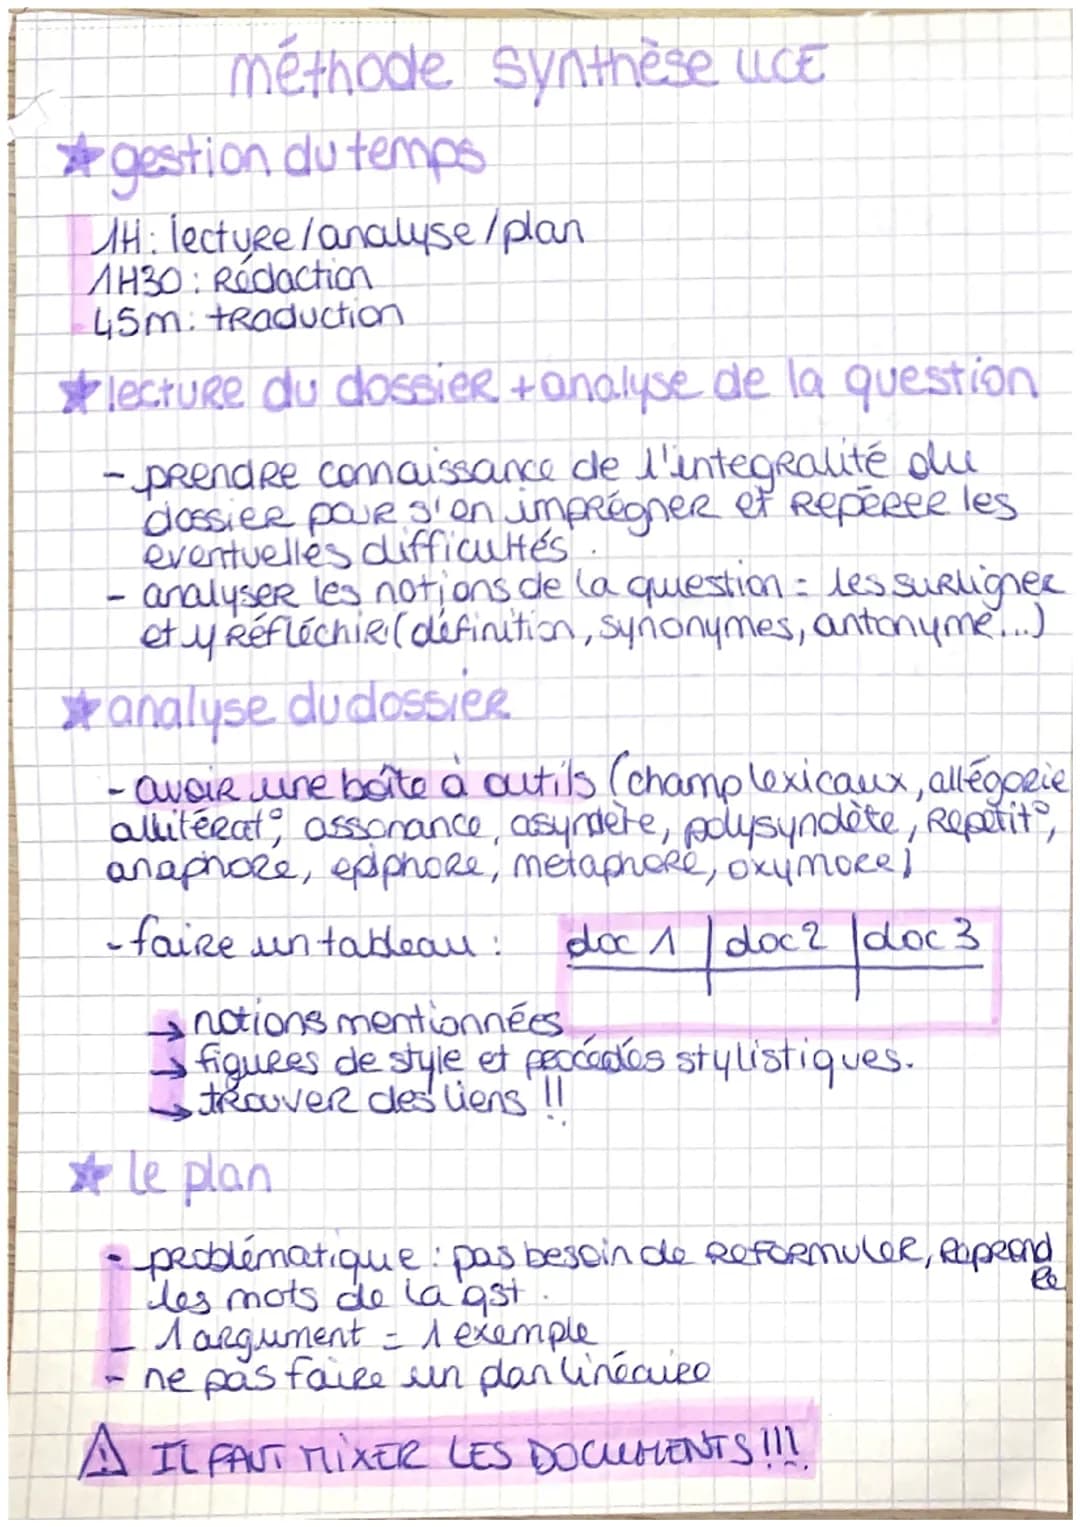 méthode synthèse LLCE
★ gestion du temps
1H : lecture / analyse / plan
1H30 : Rédaction
45m : traduction
★ lecture du dossier + analyse de la question
- prendre connaissance de l'integralité du
dossier pour s'en imprégner et repérer les
eventuelles difficultés.
- analyser les notions de la question = les surligner
et y réfléchir (définition, synonymes, antonyme...)
★ analyse du dossier
- avoir une boîte à outils (champ lexicaux, allégorie
allitérat°, assonance, asyndète, polysyndète, Répétit°,
anaphore, epiphore, métaphore, oxymore)
- faire un tableau : doc 1 | doc 2 | doc 3
→ notions mentionnées
→ figures de style et procédés stylistiques.
→ trouver des liens !!
★ le plan
- problématique : pas besoin de reformuler, reprend
re
les mots de la qst.
- 1 argument = 1 exemple
- ne pas faire un plan linéaire
⚠ IL FAUT MIXER LES DOCUMENTS !!!